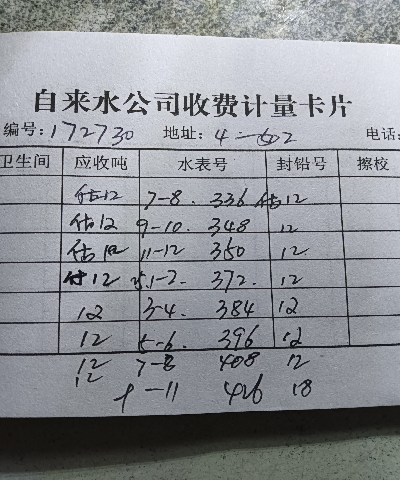 自来水公司收费计量卡片
编号:172730 地址: 4-602 电话:
卫生间 应收吨 水表号 封铅号 擦校
估12 7-8. 336 估12
估12 9-10. 348 12
估12 11-12 350 12
12 1-2. 372. 12
12 3-4. 384 12
12 5-6. 396 12
12 7-8 408 12
12 -11 426 18